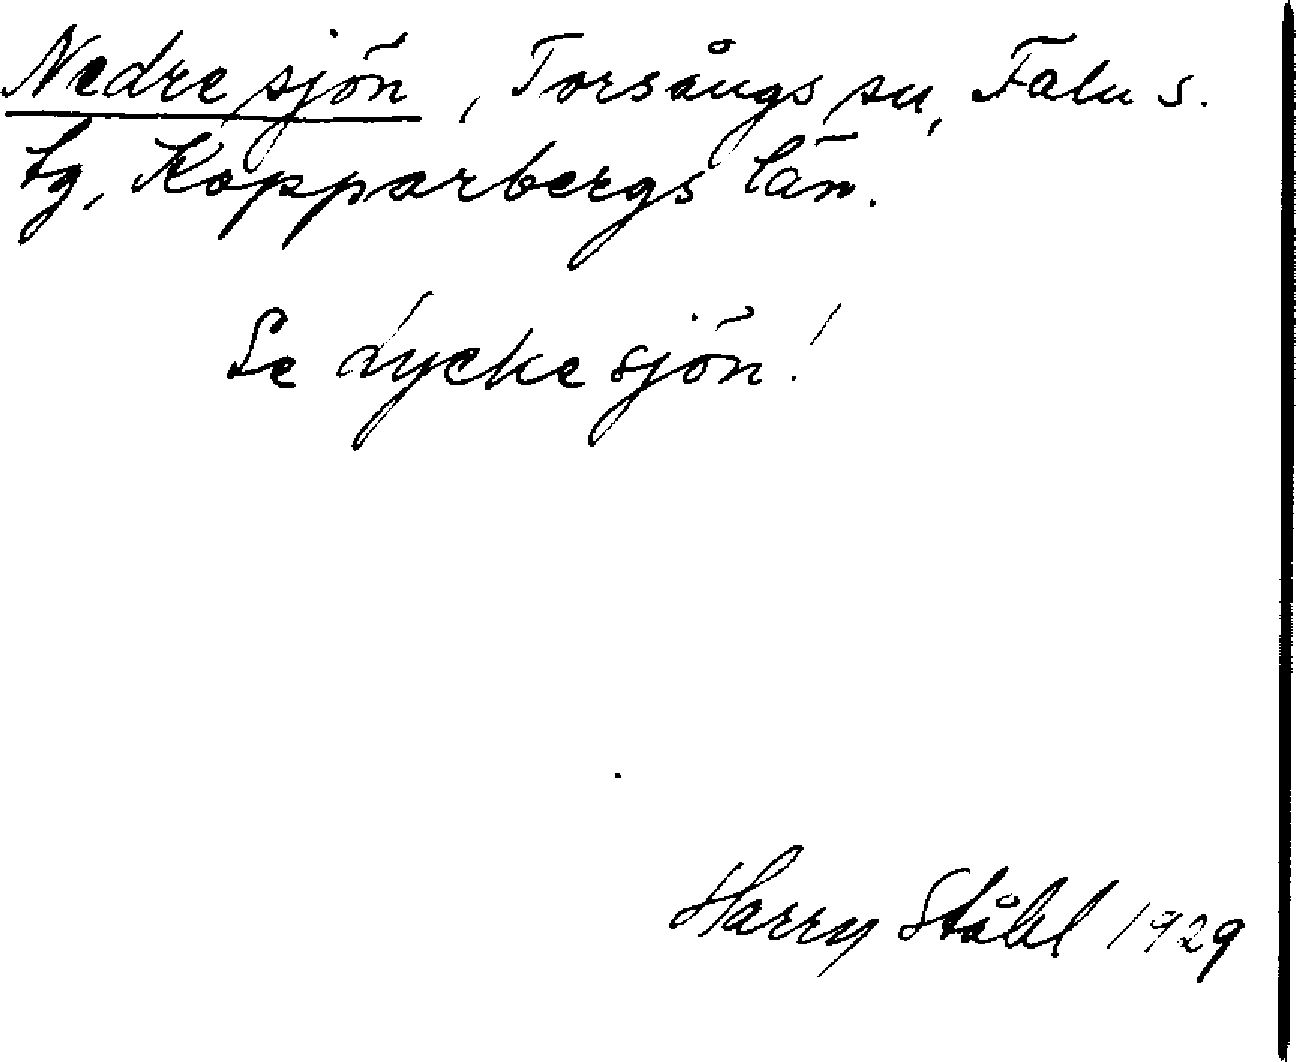 Nedre sjön, Torsångs sn, Falu s.
tg, Kopparbergs län.
Se Lyckesjön!
Harry Ståhl 1929